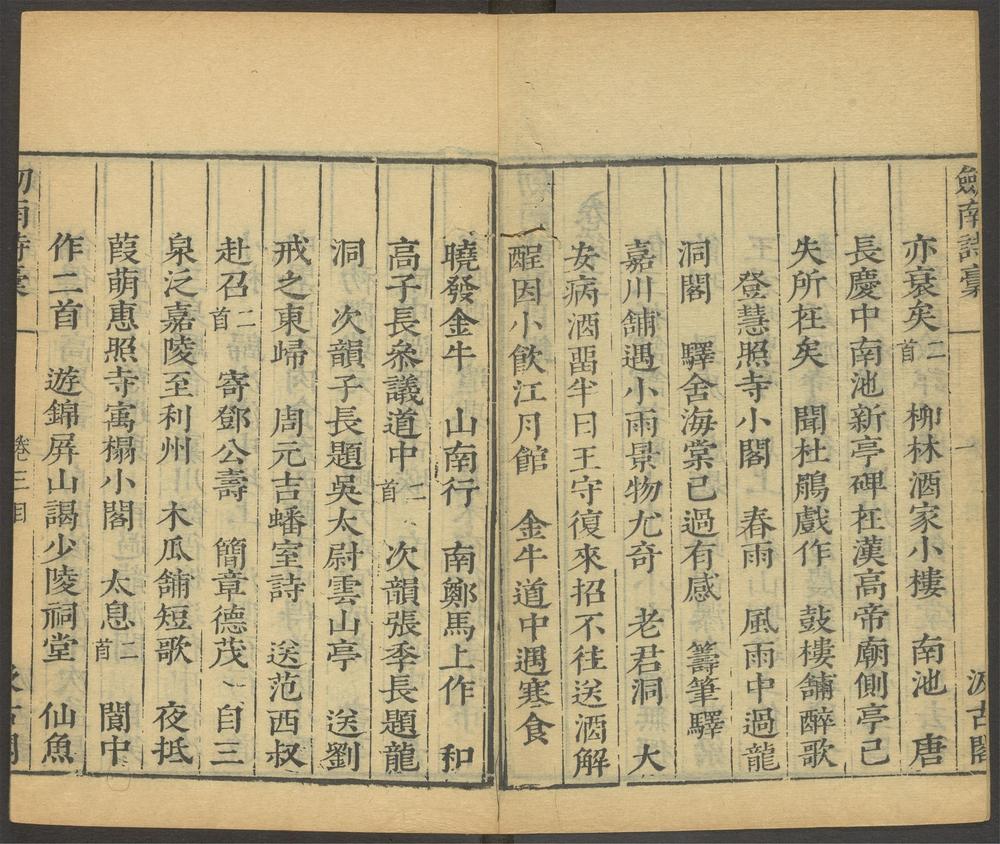 劒南詩藁 汲古閣
亦衰矣二首 柳林酒家小樓 南池 唐
長慶中南池新亭碑在漢高帝廟側亭已
失所在矣 聞杜鵑戲作 鼓樓舖醉歌
登慧照寺小閣 春雨 風雨中過龍
洞閣 驛舍海棠已過有感 籌筆驛
嘉川舖遇小雨景物尤奇 老君洞 大
安病酒畱半日王守復來招不往送酒解
酲因小飲江月館 金牛道中遇寒食
曉發金牛 山南行 南鄭馬上作 和
高子長叅議道中二首 次韻張季長題龍
洞 次韻子長題吳太尉雲山亭 送劉
戒之東歸 周元吉蟠室詩 送范西叔
赴召二首 寄鄧公壽 簡章德茂 自三
泉泛嘉陵至利州 木瓜舖短歌 夜抵
葭萌惠照寺寓榻小閣 太息二首 閬中
作二首 遊錦屏山謁少陵祠堂 仙魚
卷三目